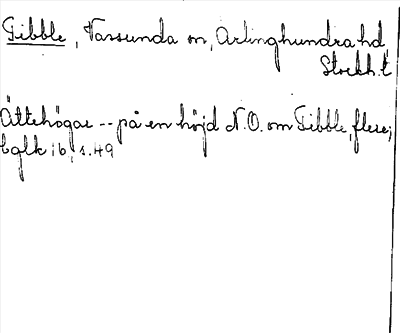 Tibble, Vassunda sn, Arlinghundra hd,
Stockh. l.
Ättehögar -- på en höjd N.O. om Tibble, flere;
bglk ; b, s. 49